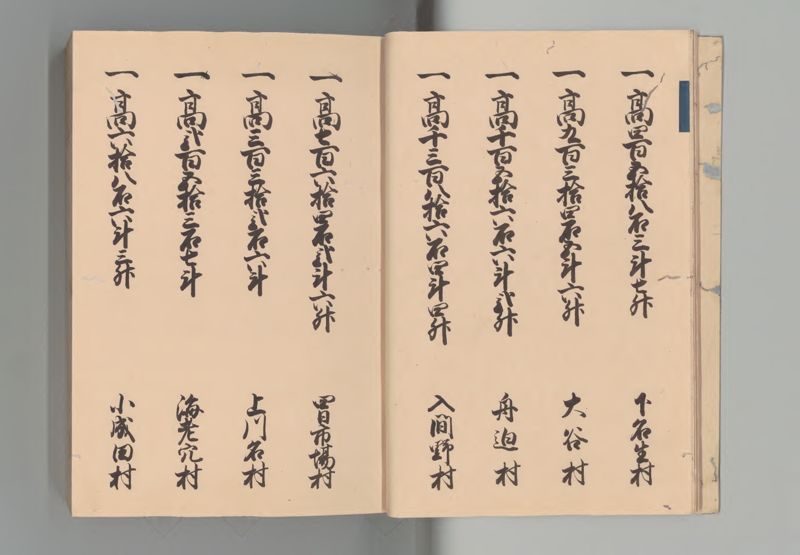 一 高四百五拾八石三斗七升 下名生村
一 高九百三拾四石五斗六升 大谷村
一 高千百五拾六石六斗弐升 舟迫村
一 高千三百八拾六石四斗四升 入間野村
一 高七百六拾四石弐斗六升 四日市場村
一 高三百三拾弐石六斗 上川名村
一 高弐百五拾三石七斗 海老穴村
一 高六拾八石六斗三升 小成田村